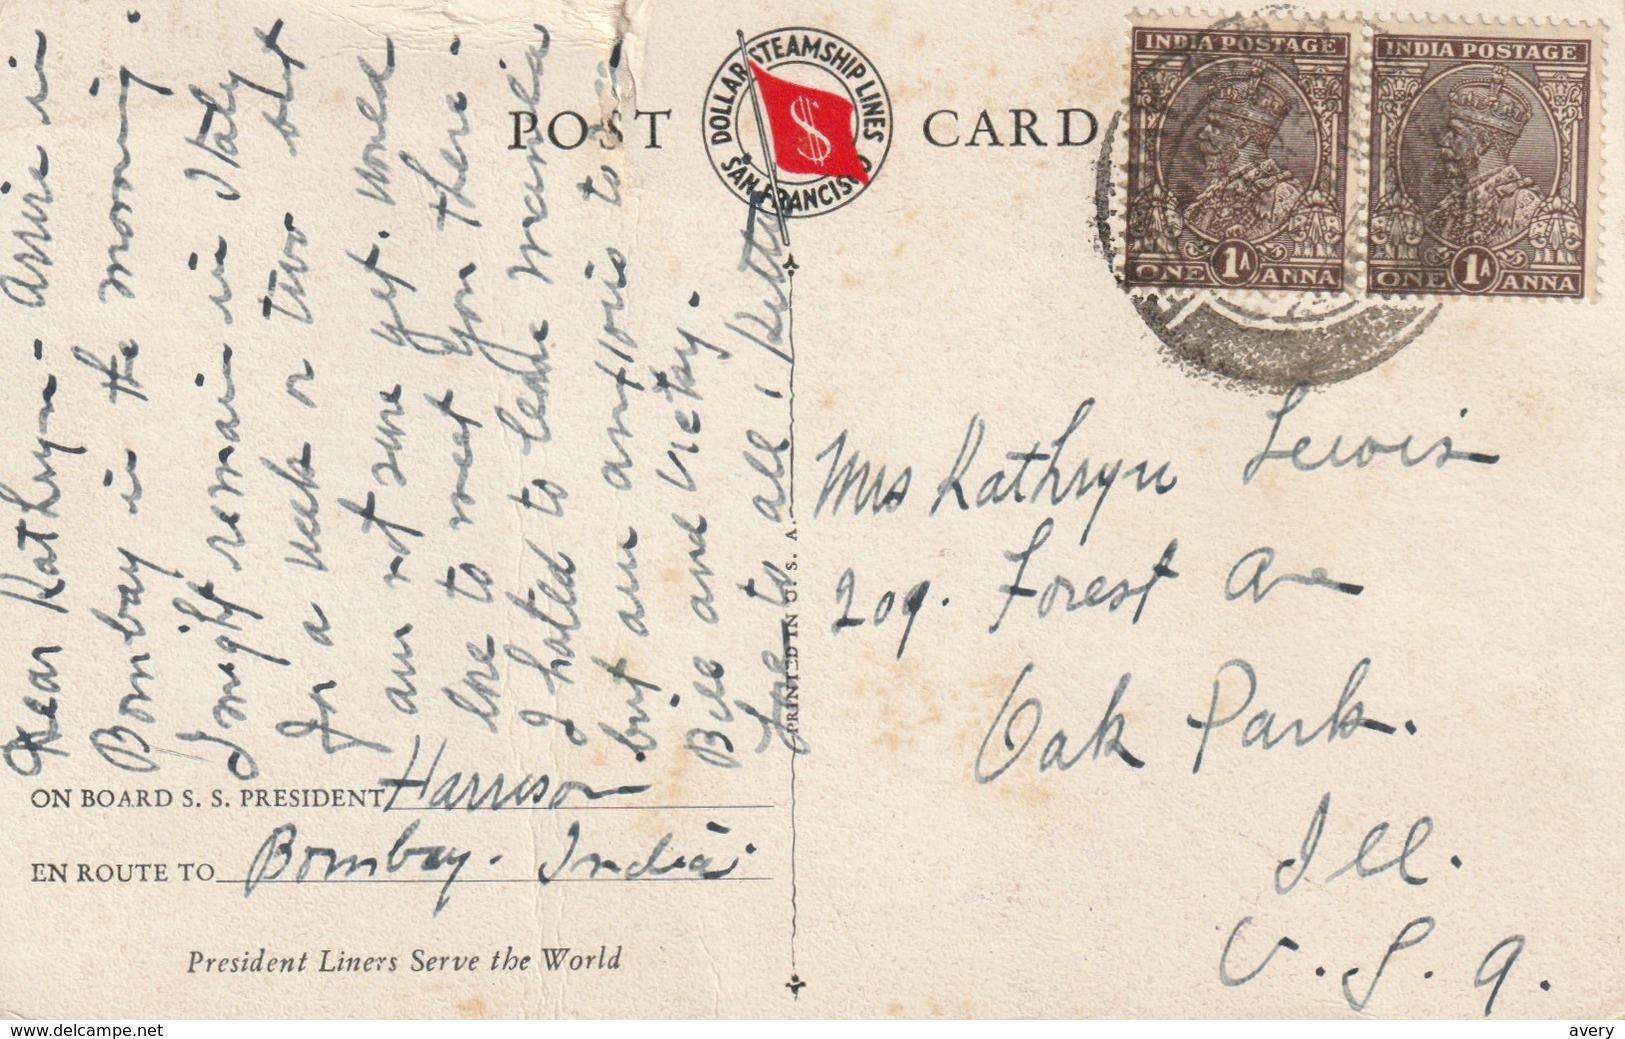 POST CARD
DOLLAR STEAMSHIP LINES
SAN FRANCISCO
$
INDIA POSTAGE
ONE 1A ANNA
INDIA POSTAGE
ONE 1A ANNA
Dear Kathryn - Arrive in
Bombay in the morning
I might remain in Italy
for a week or two but
am not sure yet. Would
love to meet you there -
I hated to leave Manila
but am anxious to see
Bill and Victory.
Love to all,
PRINTED IN U. S. A.
Mrs Kathryn Lewis
209. Forest Ave
Oak Park.
Ill.
U. S. A.
ON BOARD S. S. PRESIDENT Harrison
EN ROUTE TO Bombay. India
President Liners Serve the World
www.delcampe.net
avery